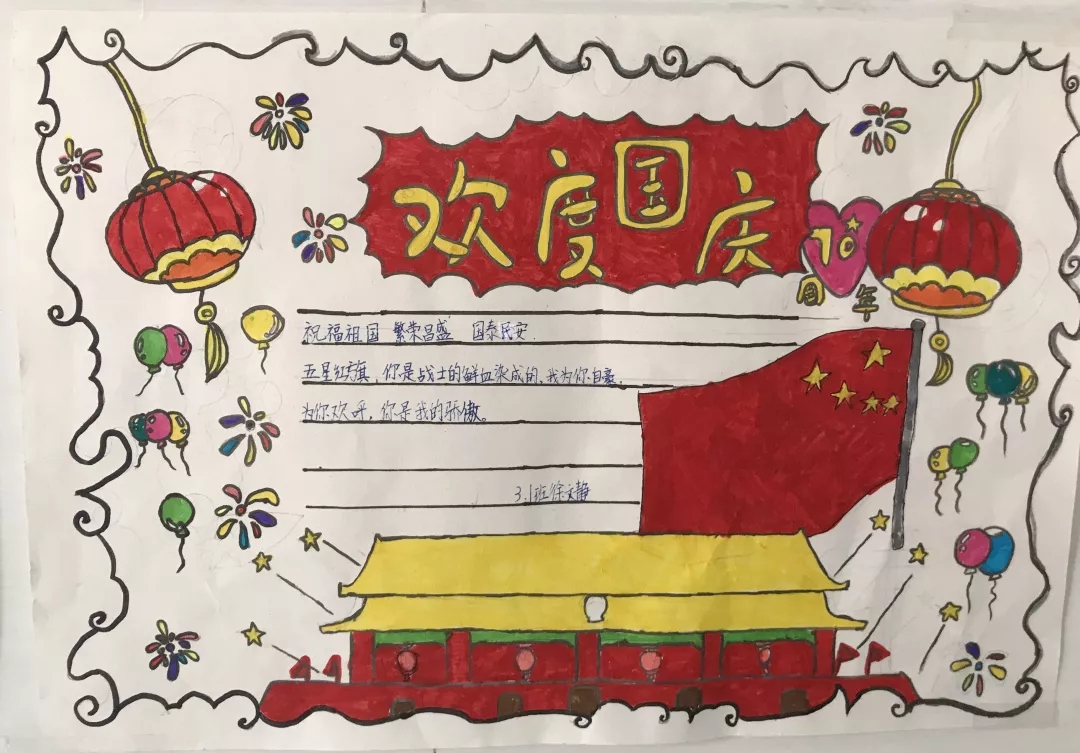 欢度国庆
70
周年
祝福祖国 繁荣昌盛 国泰民安.
五星红旗,你是战士的鲜血染成的、我为你自豪、
为你欢呼,你是我的骄傲。
3.1班徐文静